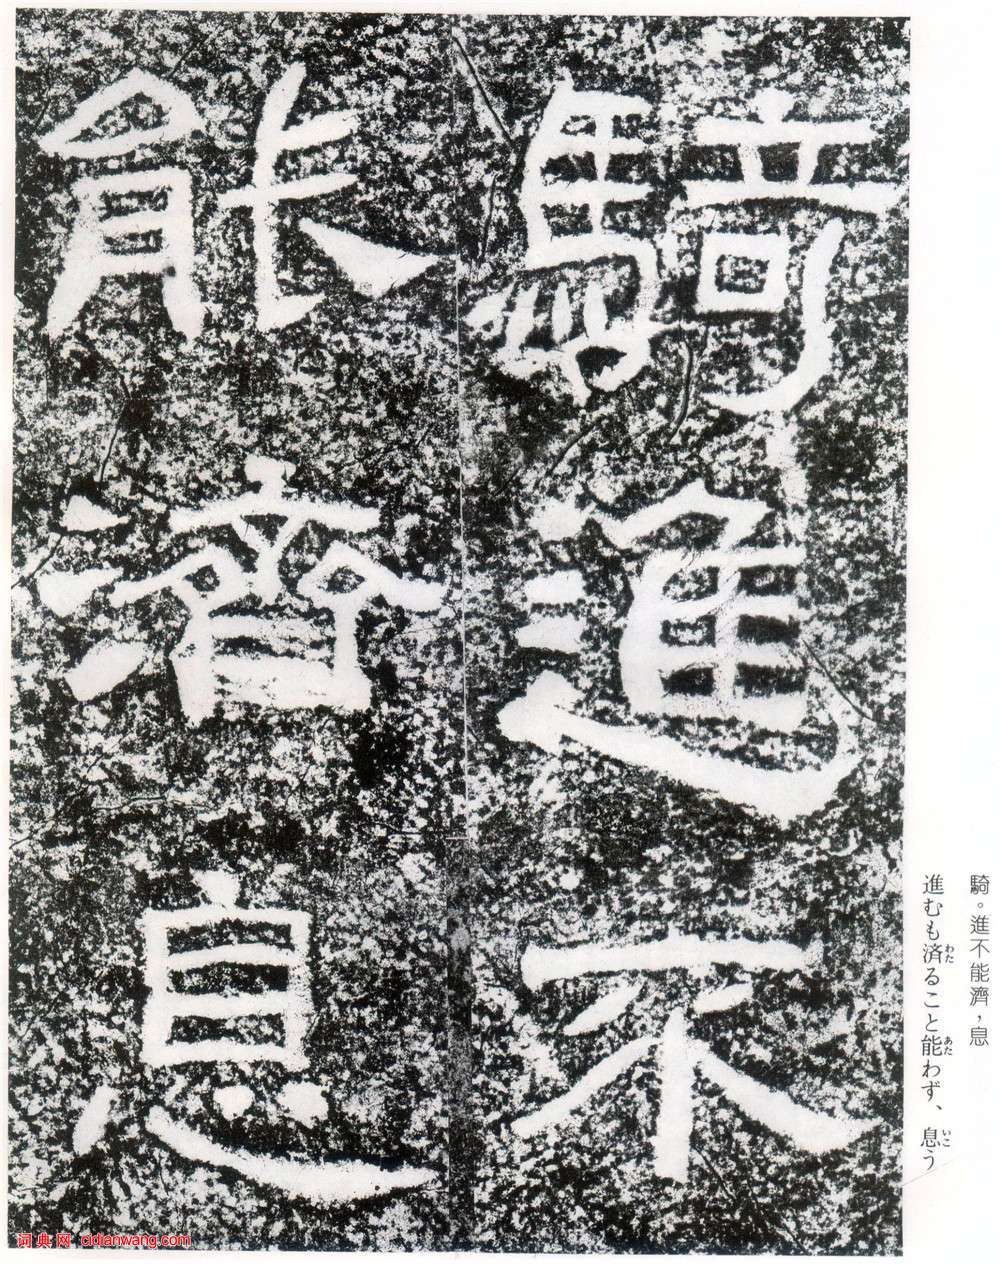 騎進不
能濟息
騎。進不能濟，息
進むも済ること能わず、息う
わた
あた
いこ
词典网 cidianwang.com